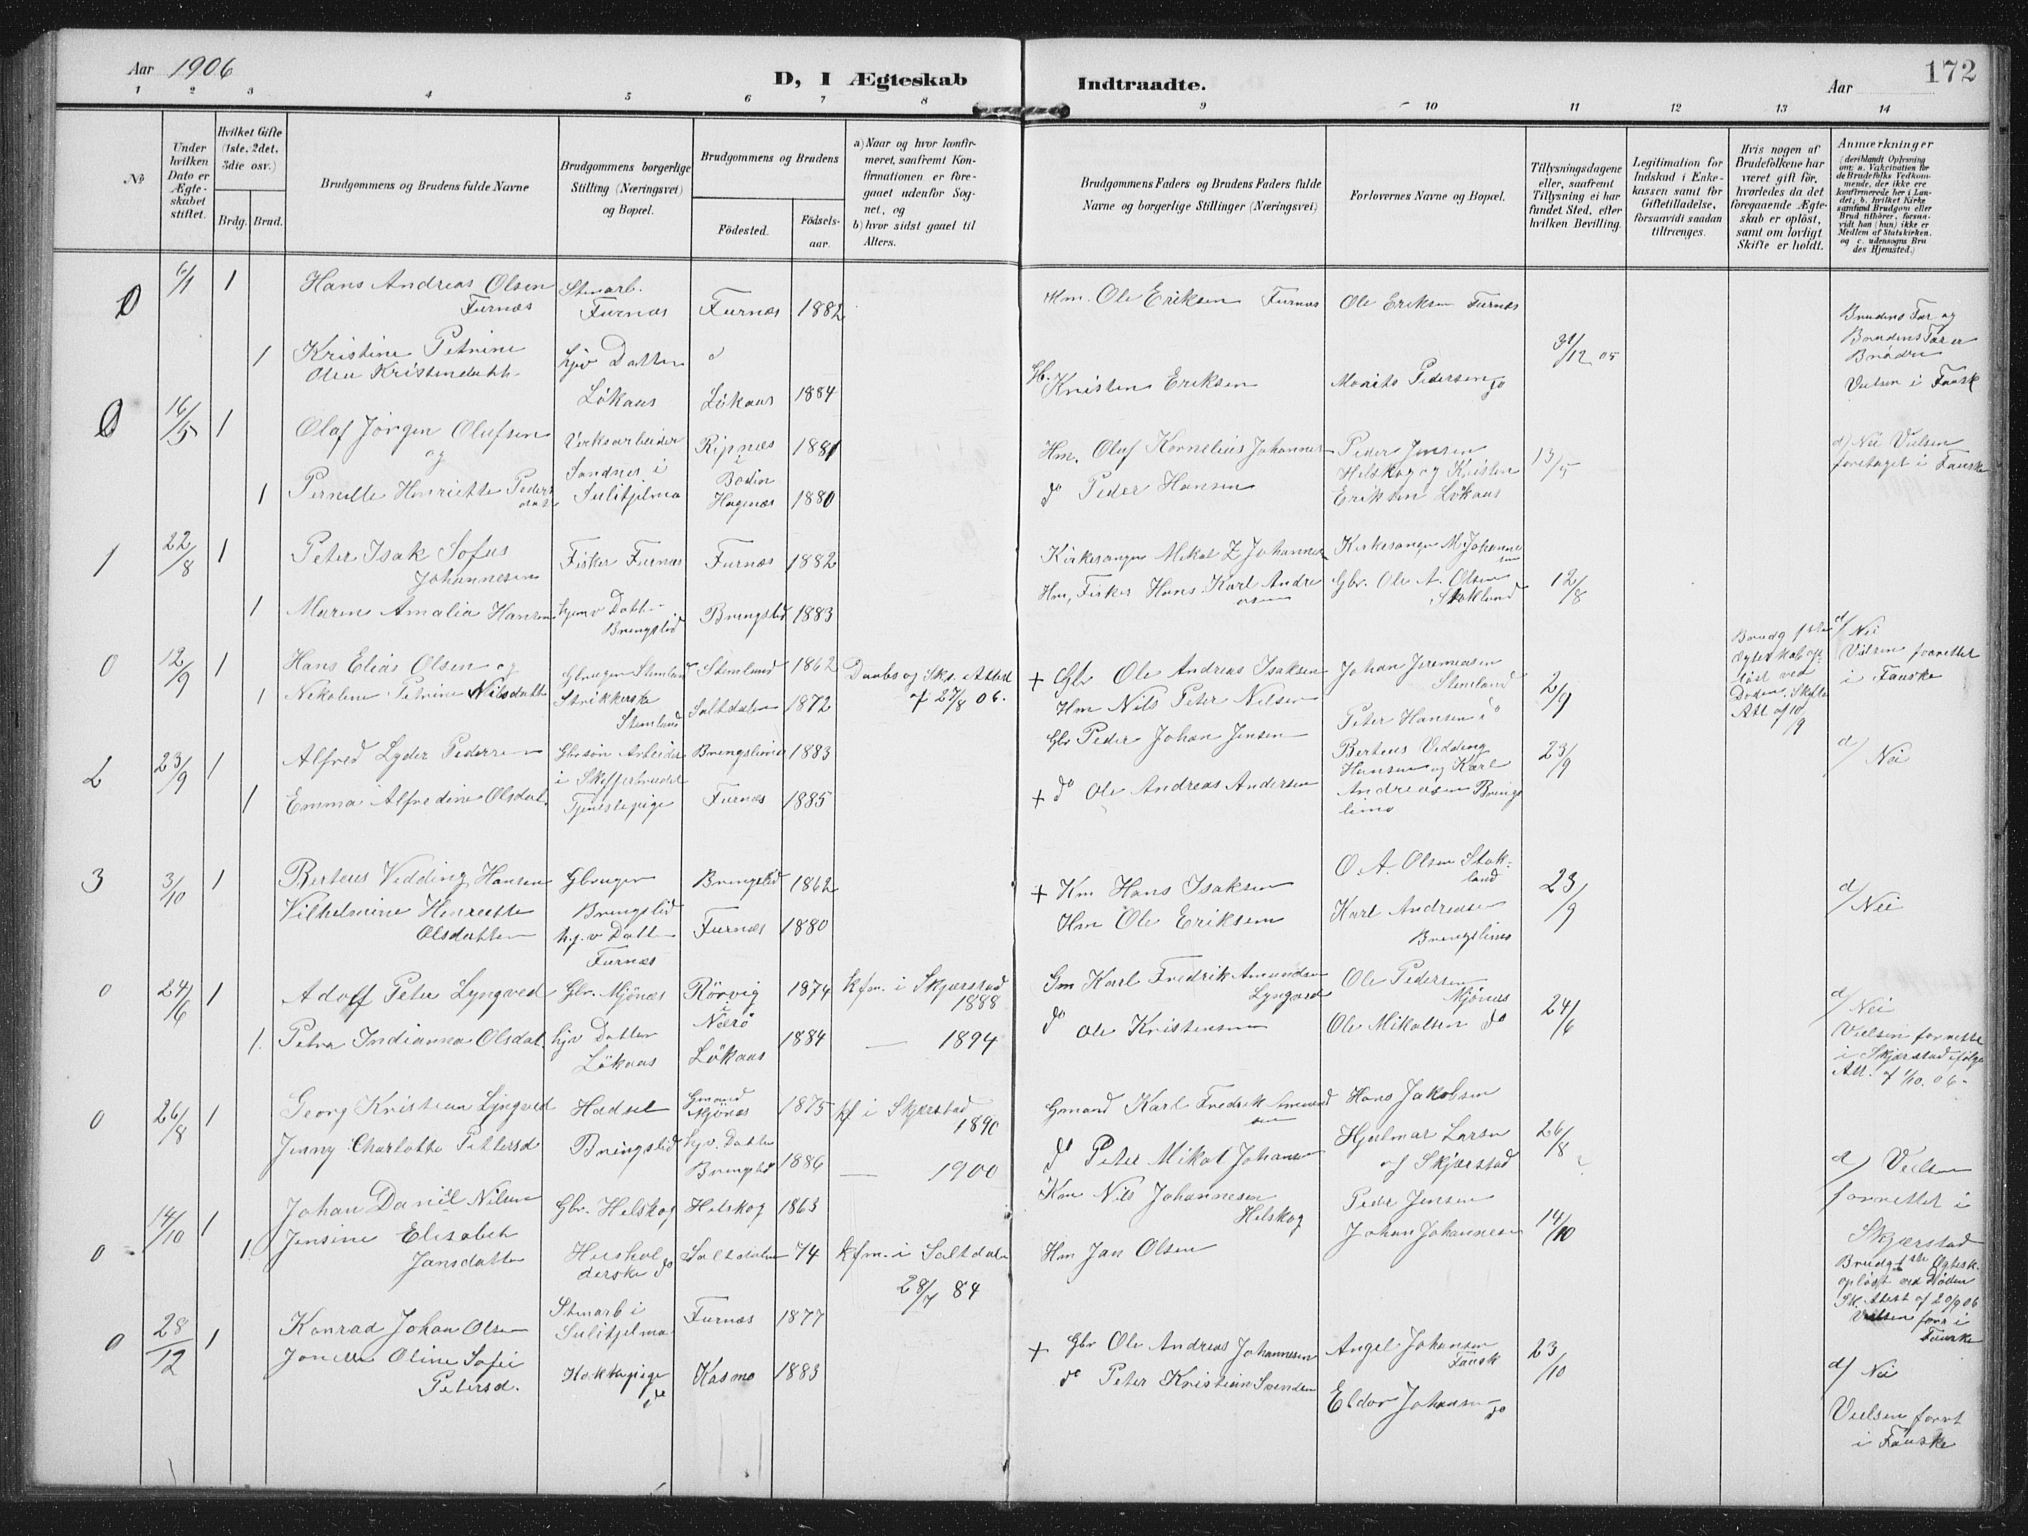 Aar 1906
D, I Ægteskab
Indtraadte.
Aar
172
1 2 3 4 5 6 7 8 9 10 11 12 13 14
No
Under hvilken Dato er Ægteskabet stiftet.
Hvilket Gifte (1ste, 2det, 3die osv.)
Brdg. Brud.
Brudgommens og Brudens fulde Navne
Brudgommens borgerlige Stilling (Næringsvei) og Bopæl.
Brudgommens og Brudens
Födested.
Födselsaar.
a) Naar og hvor konfirmeret, saafremt Konfirmationen er foregaaet udenfor Sognet, og
b) hvor sidst gaaet til Alters.
Brudgommens Faders og Brudens Faders fulde Navne og borgerlige Stillinger (Næringsvei)
Forlovernes Navne og Bopæl.
Tillysningsdagene eller, saafremt Tillysning ei har fundet Sted, efter hvilken Bevilling.
Legitimation for Indskud i Enkekassen samt for Giftetilladelse, forsaavidt saadan tiltrænges.
Hvis nogen af Brudefolkene har været gift för, hvorledes da det foregaaende Ægteskab er oplöst, samt om lovligt Skifte er holdt.
Anmærkninger
0 6/1 1 Hans Andreas Olsen Furnæs
Stenarb. Furnæs Furnæs 1882
Km. Ole Eriksen Furnæs
Ole Eriksen Furnæs
1 Kristine Petrine Olea Kristendatt.
hjv Datter Løkaas Løkaas 1884
Kristen Eriksen
Morits Pedersen do
31/12 05
Brudens Far og
Brudens Far er
Brødre
Vielsen i Fausk
0 16/5 1 Olaf Jörgen Olufsen og
Verksarbeider Sandnes i Sulitjelma
Ripnæs Bodin 1881
Hm. Oluf Kornelius Johannes
Peder Jensen Helskog og Kristen Eriksen Løkaas
13/5
d/ Nei Vielsen
foretaget i Fauske
1 Pernille Henriette Pedersdat
Hagenæs 1880
do Peder Hansen
1 22/8 1 Peter Isak Sofus Johannesen
Fisker Furnæs Furnæs 1882
Kirkesanger Mikal Z Johannes
Kirkesanger M Johannessen
1 Maren Amalia Hansen
hjemv Datt. Brengslid Brengslid 1883
Hm, Fisker Hans Karl Andreasen
Gbr. Ole A. Olsen Stokland
12/8
0 12/9 1 Hans Elias Olsen og
Gbruger Stemland Stemland 1862
Daabs og Sko. Attest
af 27/8 06.
+ Gbr Ole Andreas Isaksen
Johan Jeremiasen Stemland
2/9
1 Nikoline Petrine Nilsdatte
Strikkerske Stemland Saltdalen 1872
Hm Nils Peter Nilsen
Peter Hansen i do
Ægteskab op-
løst ved
Døden. Skifte
Att af 10/9
d/ Nei
Vielsen forrettet
i Fauske
2 23/9 1 Alfred Lyder Pedersen
Gbrsøn Arbeider Brengslimo 1883
Gbr Peder Johan Jensen
Berteus Vedding Hansen og Karl Andreasen Brengslimo
23/9
d/ Nei
1 Emma Alfredine Olsdat.
Tjenestepige Furnæs 1885
+ do Ole Andreas Andersen
3 3/10 1 Berteus Vedding Hansen
Gbruger Brengslid Brengslid 1862
+ Km Hans Isaksen
O. A. Olsen Stokland
23/9
d/ Nei
Vilhelmine Henriette Olsdatter
hj.v Datter Furnæs Furnæs 1880
Hm Ole Eriksen
Karl Andreasen Brengslimo
0 24/6 1 Adolf Peter Lyngved
Gbr. Mjönæs Rörvig Nærö 1874
kfm. i Skjærstad 1888
Gm Karl Fredrik Amundsen Lyngved
Ole Pedersen Mjönæs
24/6
d/ Nei
Vielsen forrettet
i Skjærstad ifølge
Att. af 1/10. 06.
1. Petra Indianna Olsdat.
hjv Datter Løkaas Løkaas 1884
— 1894
do Ole Kristensen
Ole Mikalsen do
0 26/8 1 Georg Kristian Lyngved
Hadsel Gmand Mjönæs 1875
kf i Skjærstad 1890
Gmand Karl Fredrik Amundsen
Hans Jakobsen
26/8
Jenny Charlotte Pettersd
Brengslid hjv. Datter Brengslid 1886
— 1900
do Peter Mikal Johansen
Hjalmar Larsen af Skjærstad
d/ Vielsen
forrettet i
Skjærstad
0 14/10 1 Johan Daniel Nilsen
Gbr. Helskog Helskog 1863
Km Nils Johannesen Helskog
Peder Jensen
14/10
1. Jensine Elisabet Jansdatter
Husholderske do Saltdalen 74
kfm. i Saltdalen
28/7 84
Hm Jan Olsen
Johan Johannesen
Brudg 1ste Ægtesk.
opløst ved Døden
Sk. Attest af 20/9 06
Vielsen forr i
Fauske
0 28/12 1 Konrad Johan Olsen
Stenarb i Sulitjelma Furnæs 1877
+ Gbr Ole Andreas Johannesen
Angel Johansen Fausk
23/10
d/ Nei
Vielsen forrt
i Fauske
Oline Sofie Petersd.
Kokkepige do Kosmo 1883
do Peter Kristian Svendsen
Eldor Johansen do